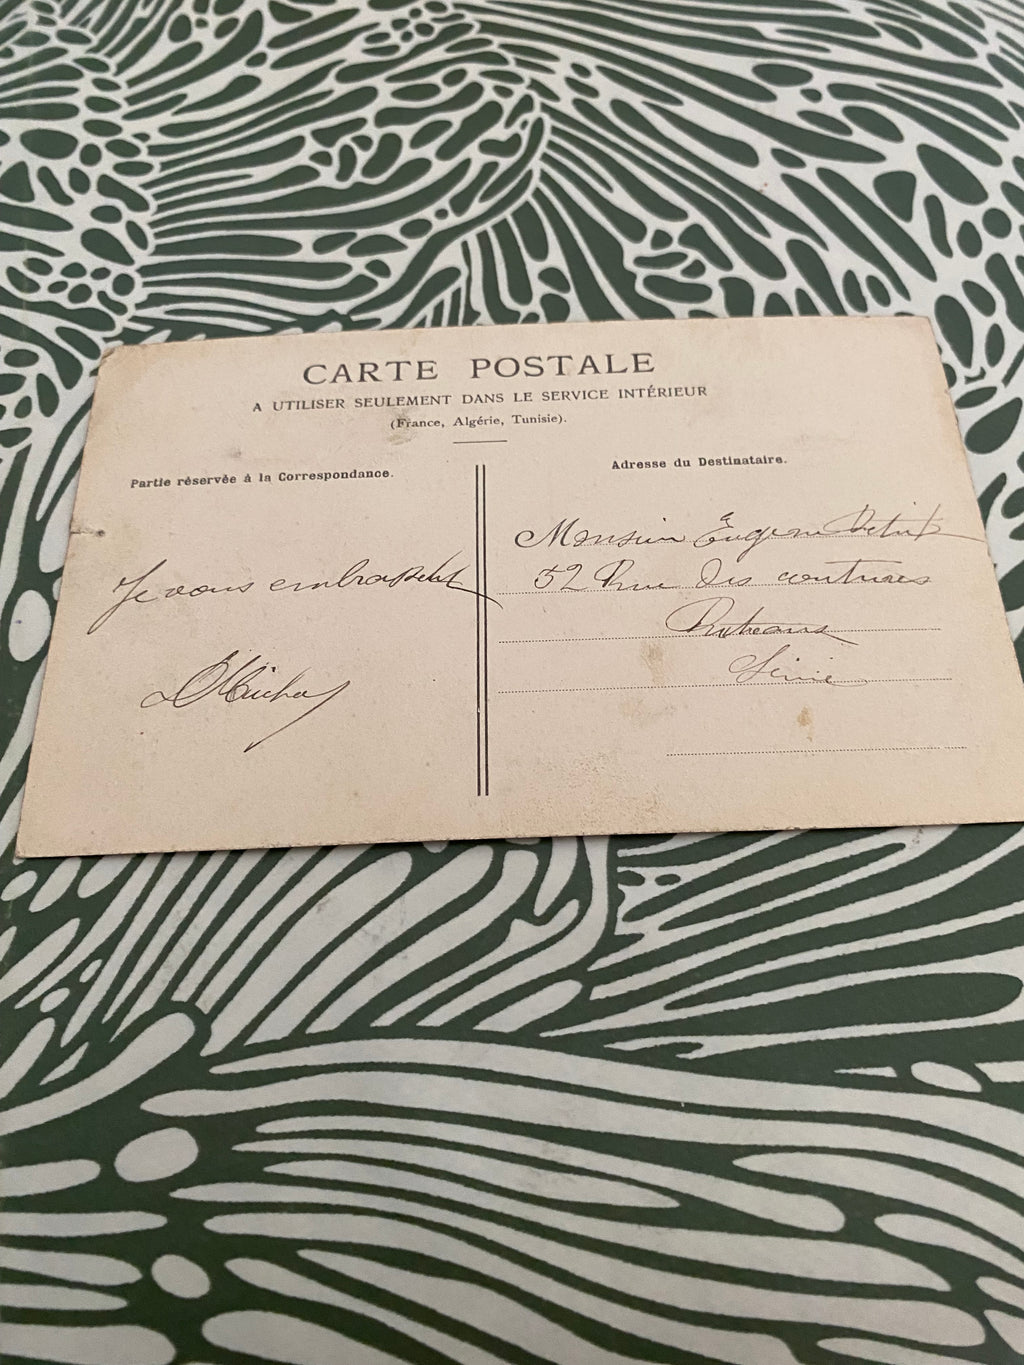 CARTE POSTALE
A UTILISER SEULEMENT DANS LE SERVICE INTÉRIEUR
(France, Algérie, Tunisie).
Partie réservée à la Correspondance.
Je vous embrasse
Adresse du Destinataire.
Monsieur Eugene
52 Rue des
Puteaux
Seine